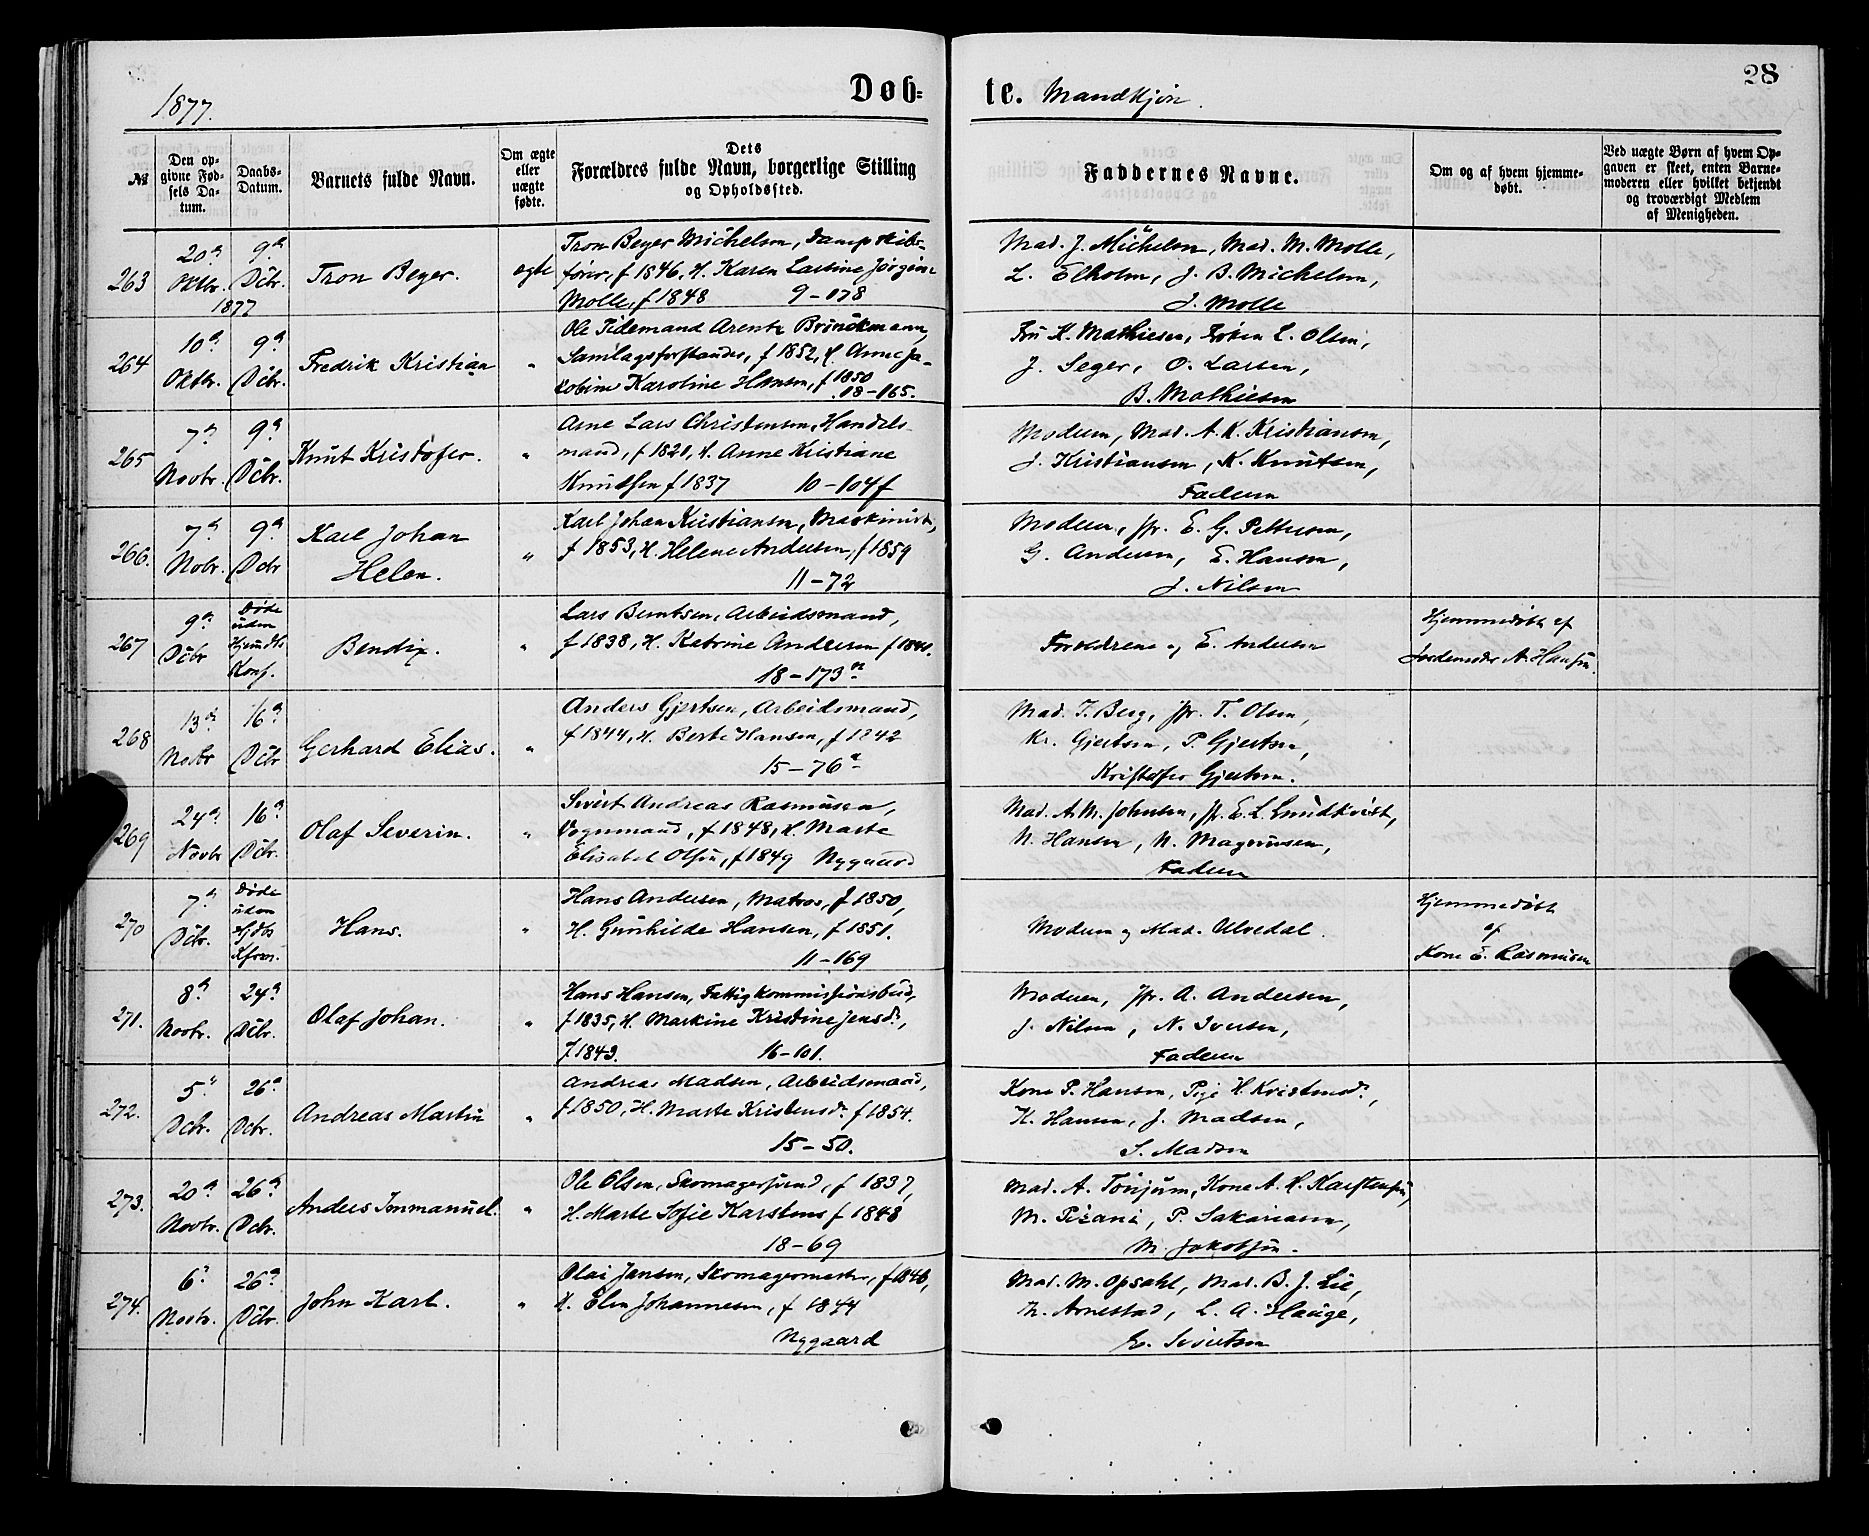 1877.
Døb-
te. Mandkjøn.
28
№
Den op-
givne Fød-
sels Da-
tum.
Daabs-
Datum.
Barnets fulde Navn.
Om ægte
eller
uægte
fødte.
Dets
Forældres fulde Navn, borgerlige Stilling
og Opholdssted.
Faddernes Navne.
Om og af hvem hjemme-
døbt.
Ved uægte Børn af hvem Op-
gaven er skeet, enten Barne-
moderen eller hvilket bekjendt
og troværdigt Medlem
af Menigheden.
263
20de
Oktbr.
1877
9de
Dcbr.
Tron Beyer.
ægte
Tron Beyer Michelsen, Dampskibs-
fører, f 1846, H. Karen Larsine Jörgine
Molle, f 1848 9-078
Mad. J. Michelsen, Mad. M. Molle,
L. Elholm, J. B. Michelsen,
J. Molle
264
10de
Oktbr.
9de
Dcbr.
Fredrik Kristian
"
Ole Tidemand Arentz Brinckmann,
Samlagsforstander, f 1852, H. Anne Ja-
kobine Karoline Hansen, f 1850
18-165.
Fru K. Mathiesen, Frøken L. Olsen,
J. Seger, O. Larsen,
B. Mathiesen
265
7de
Novbr.
9de
Dcbr.
Knut Kristofer.
"
Arne Lars Christensen, Handels-
mand, f 1820, H. Anne Kristiane
Knudsen f 1837 10-104f
Moderen, Mad. A. K. Kristiansen,
J. Kristiansen, K. Knutsen,
Faderen
266.
7de
Nobr.
9de
Dcbr
Karl Johan
Helen.
"
Karl Johan Kristiansen, Maskinist,
f 1853, H. Helene Andersen, f 1859
11-72
Moderen, Jfr. E. G. Pettersen,
G. Andersen, E. Hansen,
J. Nilsen
267
9de
Dcbr
Døde
uden
Hjemdbs
Konf.
Bendix.
"
Lars Berntsen, Arbeidsmand,
f 1838, H. Katrine Andersen f 1840.
18-173a
Forældrene og E. Andersen
Hjemmedøbt af
Jordemoder A. Hansen.
268
13de
Novbr
16de
Dcbr
Gerhard Elias.
"
Anders Gjertsen, Arbeidsmand,
f 1844, H. Berte Hansen, f 1842
15-76a
Mad. J. Berg, Jfr. T. Olsen,
Kr. Gjertsen, P. Gjertsen,
Kristofer Gjertsen.
269
24de
Novbr
16de
Dcbr.
Olaf Severin.
"
Sivert Andreas Rasmusen,
Vognmand, f 1848, H. Marte
Elisabet Olsen, f 1849 Nygaard
Mad. A. M. Johnsen, Jfr. E. L. Lundkvist,
N. Hansen, N. Magnusen,
Faderen
270
7de
Dcbr.
Døde
uden
Hjdbs
Kform.
Hans.
"
Hans Andersen, Matros, f 1850,
H. Gunhilde Hansen, f 1851.
11-169
Moderen og Mad. Ulvedal.
Hjemmedøbt
af
Kone E. Rasmusen
271.
8de
Novbr.
24de
Dcbr.
Olaf Johan.
"
Hans Hansen, Fattigkommissionsbud,
f 1835, H. Markine Kristine Jensd.,
f 1843. 16-101.
Moderen, Jfr. A. Andersen,
J. Nilsen, N. Iversen,
Faderen
272.
5te
Dcbr.
26de
Dcbr.
Andreas Martin
"
Andreas Madsen, Arbeidsmand,
f 1850, H. Marte Kristensdr. f 1854.
15-50.
Kone P. Hansen, Pige H. Kristensdr.,
K. Hansen, J. Madsen,
S. Madsen
273.
20de
Novbr.
26de
Dcbr.
Anders Immanuel.
"
Ole Olsen, Skomagersvend, f 1837,
H. Marte Sofie Karstens f 1843
18-69
Mad. A. Tönjum, Kone A. H. Karstensen,
M. Pizani, P. Sakariasen,
M. Jakobsen.
274.
6te
Novbr.
26de
Dcbr.
John Karl.
"
Olai Jansen, Skomagermester, f 1846,
H. Elen Johannesen, f 1844
Nygaard
Mad. M. Opsahl, Mad. B. J. Lie,
Th. Arnestad, L. A. Hauge,
E. Sivertsen